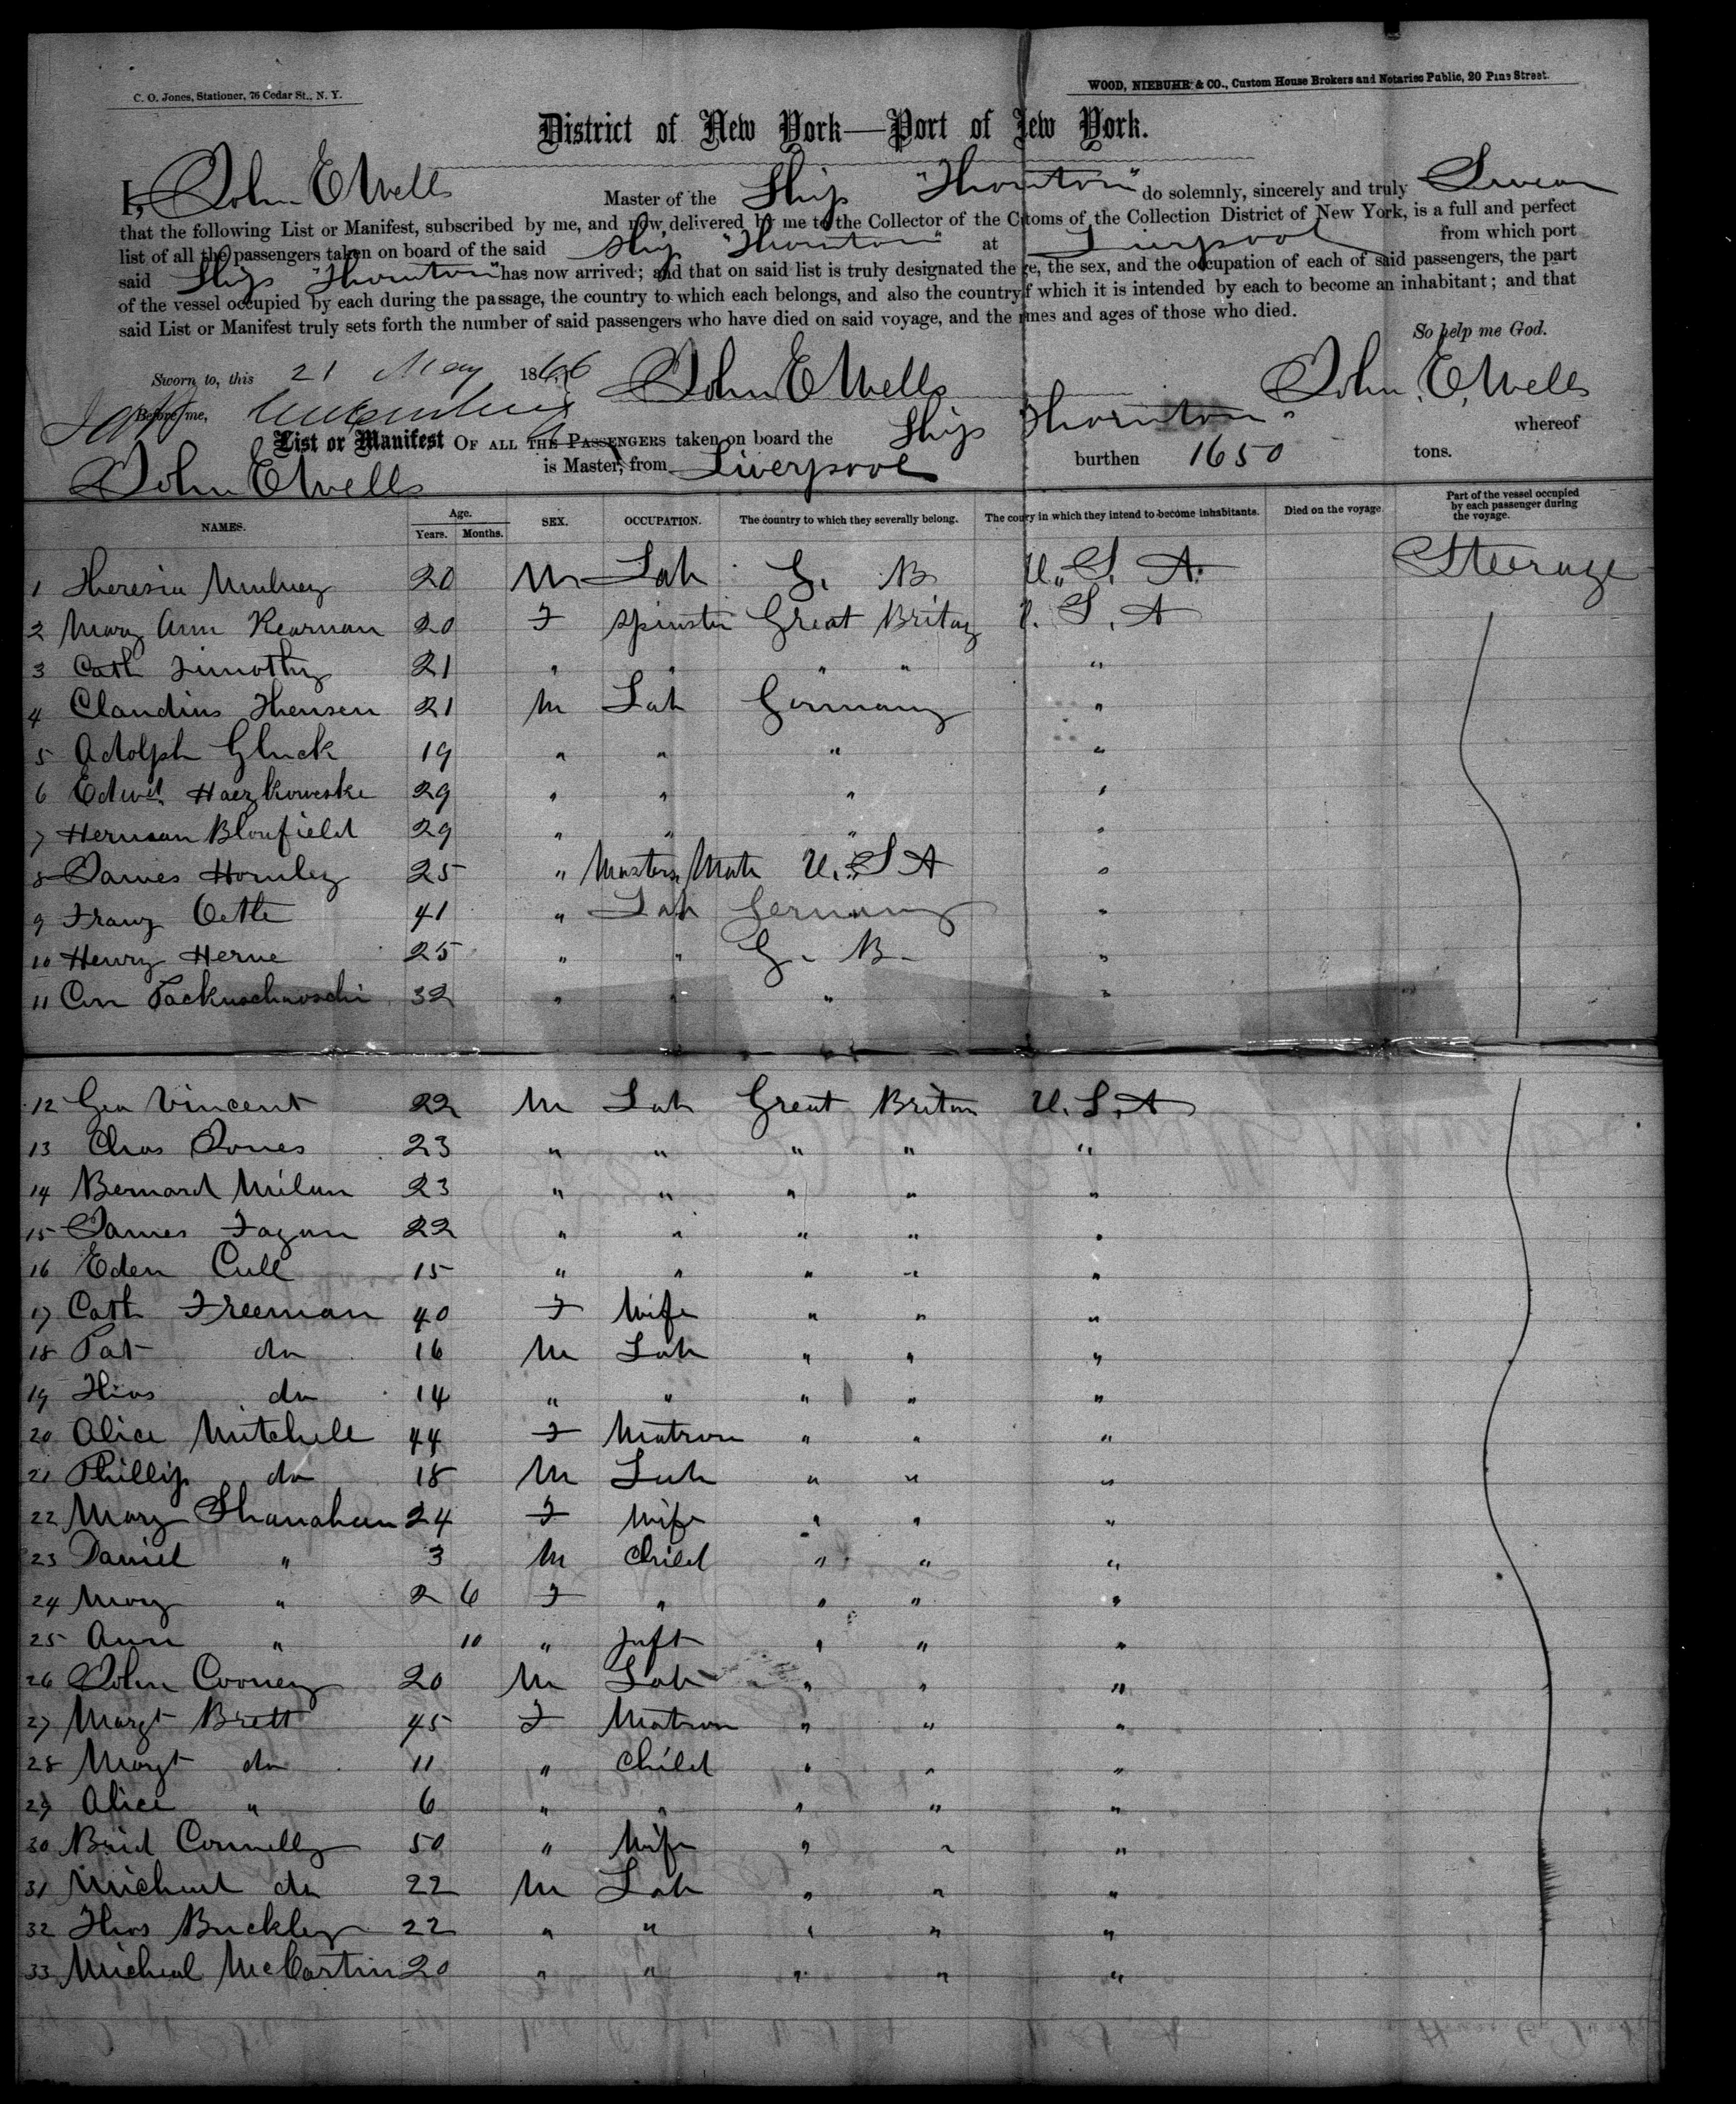 C. O. Jones, Stationer, 76 Cedar St., N. Y.
WOOD, NIEBUHR & CO., Custom House Brokers and Notaries Public, 20 Pine Street.
District of New York—Port of New York.
I, John E Wells Master of the Ship "Thornton" do solemnly, sincerely and truly Swear
that the following List or Manifest, subscribed by me, and now delivered by me to the Collector of the Customs of the Collection District of New York, is a full and perfect
list of all the passengers taken on board of the said Ship "Thornton" at Liverpool from which port
said Ship "Thornton" has now arrived; and that on said list is truly designated the age, the sex, and the occupation of each of said passengers, the part
of the vessel occupied by each during the passage, the country to which each belongs, and also the country of which it is intended by each to become an inhabitant; and that
said List or Manifest truly sets forth the number of said passengers who have died on said voyage, and the names and ages of those who died.
So help me God.
Sworn to, this 21 May 1866 John E Wells John. E. Wells
Before me,
List or Manifest OF ALL THE PASSENGERS taken on board the Ship Thornton" whereof
John E Wells is Master, from Liverpool burthen 1650 tons.
NAMES. Age. Years. Months. SEX. OCCUPATION. The country to which they severally belong. The country in which they intend to become inhabitants. Died on the voyage. Part of the vessel occupied by each passenger during the voyage.
1 Theresia 20 M Lab G. B U. S. A. Steerage
2 Mary Ann Kearnan 20 F Spinster Great U. S. A
3 Cath Timothy 21 " " " " "
4 Claudius Thensen 21 M Lab Germany "
5 Adolph Gluck 19 " " " "
6 Edwd. Haezkoweske 29 " " " "
7 Herman Bloufield 29 " " " "
8 James Hornley 25 " Masters Mate U. S A "
9 Franz Oette 41 " Lab Germany "
10 Henry Herne 25 " " G. B. "
11 32 " " " "
12 Geo Vincent 22 M Lab Great Briton U. S. A
13 Chas Jones 23 " " " " "
14 Bernard Milan 23 " " " " "
15 James Fagan 22 " " " " "
16 Eden Cull 15 " " " " "
17 Cath Freeman 40 F Wife " " "
18 Pat do 16 M Lab " " "
19 Thos do 14 " " " " "
20 Alice Mitchell 44 F Matron " " "
21 Phillip do 18 M Lab " " "
22 Mary Shanahan 24 F Wife " " "
23 Daniel " 3 M Child " " "
24 Mary " 2 6 F " " " "
25 Ann " 10 " Inft " " "
26 John Cooney 20 M Lab " " "
27 Margt Brett 45 F Matron " " "
28 Margt do 11 " Child " " "
29 Alice " 6 " " " " "
30 Brid Connelly 50 " Wife " " "
31 Michael do 22 M Lab " " "
32 Thos Buckley 22 " " " " "
33 Micheal McCartin 20 " " " " "